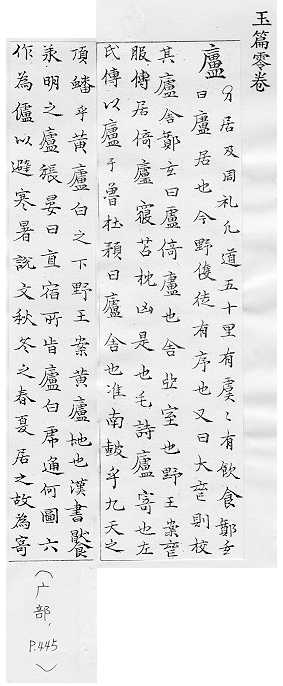 玉篇零卷
廬 力居反周礼凡道五十里有廬〻有飲食鄭玄
曰廬居也今野候徒有序也又曰大喪則校
其廬舍鄭玄曰廬倚廬也舍堊室也野王案喪
服傳居倚廬寢苫枕凷是也毛詩廬寄也左
氏傳以廬于魯杜預曰廬舍也淮南鼓乎九天之
頂蟠乎黃廬白之下野王案黃廬地也漢書猒
承明之廬張晏曰直宿所皆廬白虎通何圖六
作為廬以避寒暑說文秋冬之春夏居之故為寄
(广部,
P.445)